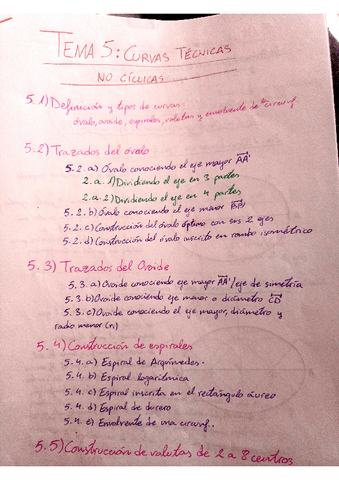 TEMA 5: CURVAS TÉCNICAS
NO CÍCLICAS
5.1) Definición y tipos de curvas:
óvalo, ovoide, espirales, volutas y envolvente de la circunf.
5.2) Trazados del óvalo
5.2.a) Óvalo conociendo el eje mayor AA'
2.a.1) Dividiendo el eje en 3 partes
2.a.2) Dividiendo el eje en 4 partes
5.2.b) Óvalo conociendo el eje menor BB'
5.2.c) Construcción del óvalo óptimo con sus 2 ejes
5.2.d) Construcción del óvalo inscrito en rombo isométrico
5.3) Trazados del Ovoide
5.3.a) Ovoide conociendo eje mayor AA'/eje de simetría
5.3.b) Ovoide conociendo eje menor o diámetro CD
5.3.c) Ovoide conociendo el eje mayor, diámetro y
radio menor (n)
5.4) Construcción de espirales
5.4.a) Espiral de Arquímedes.
5.4.b) Espiral logarítmica
5.4.c) Espiral inscrita en el rectángulo áureo
5.4.d) Espiral de durero
5.4.e) Envolvente de una circunf.
5.5) Construcción de volutas de 2 a 8 centros